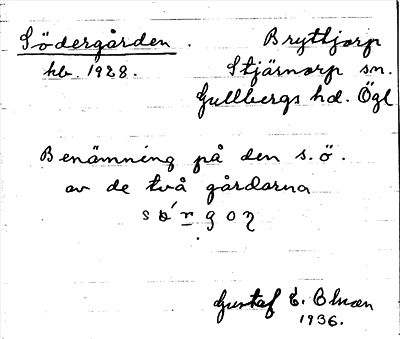 Södergården. Bryttjorp
hb. 1928. Stjärnorp sn.
Gullbergs hd. Ögl
Benämning på den s.ö.
av de två gårdarna
Gustaf E. Olsson
1936.